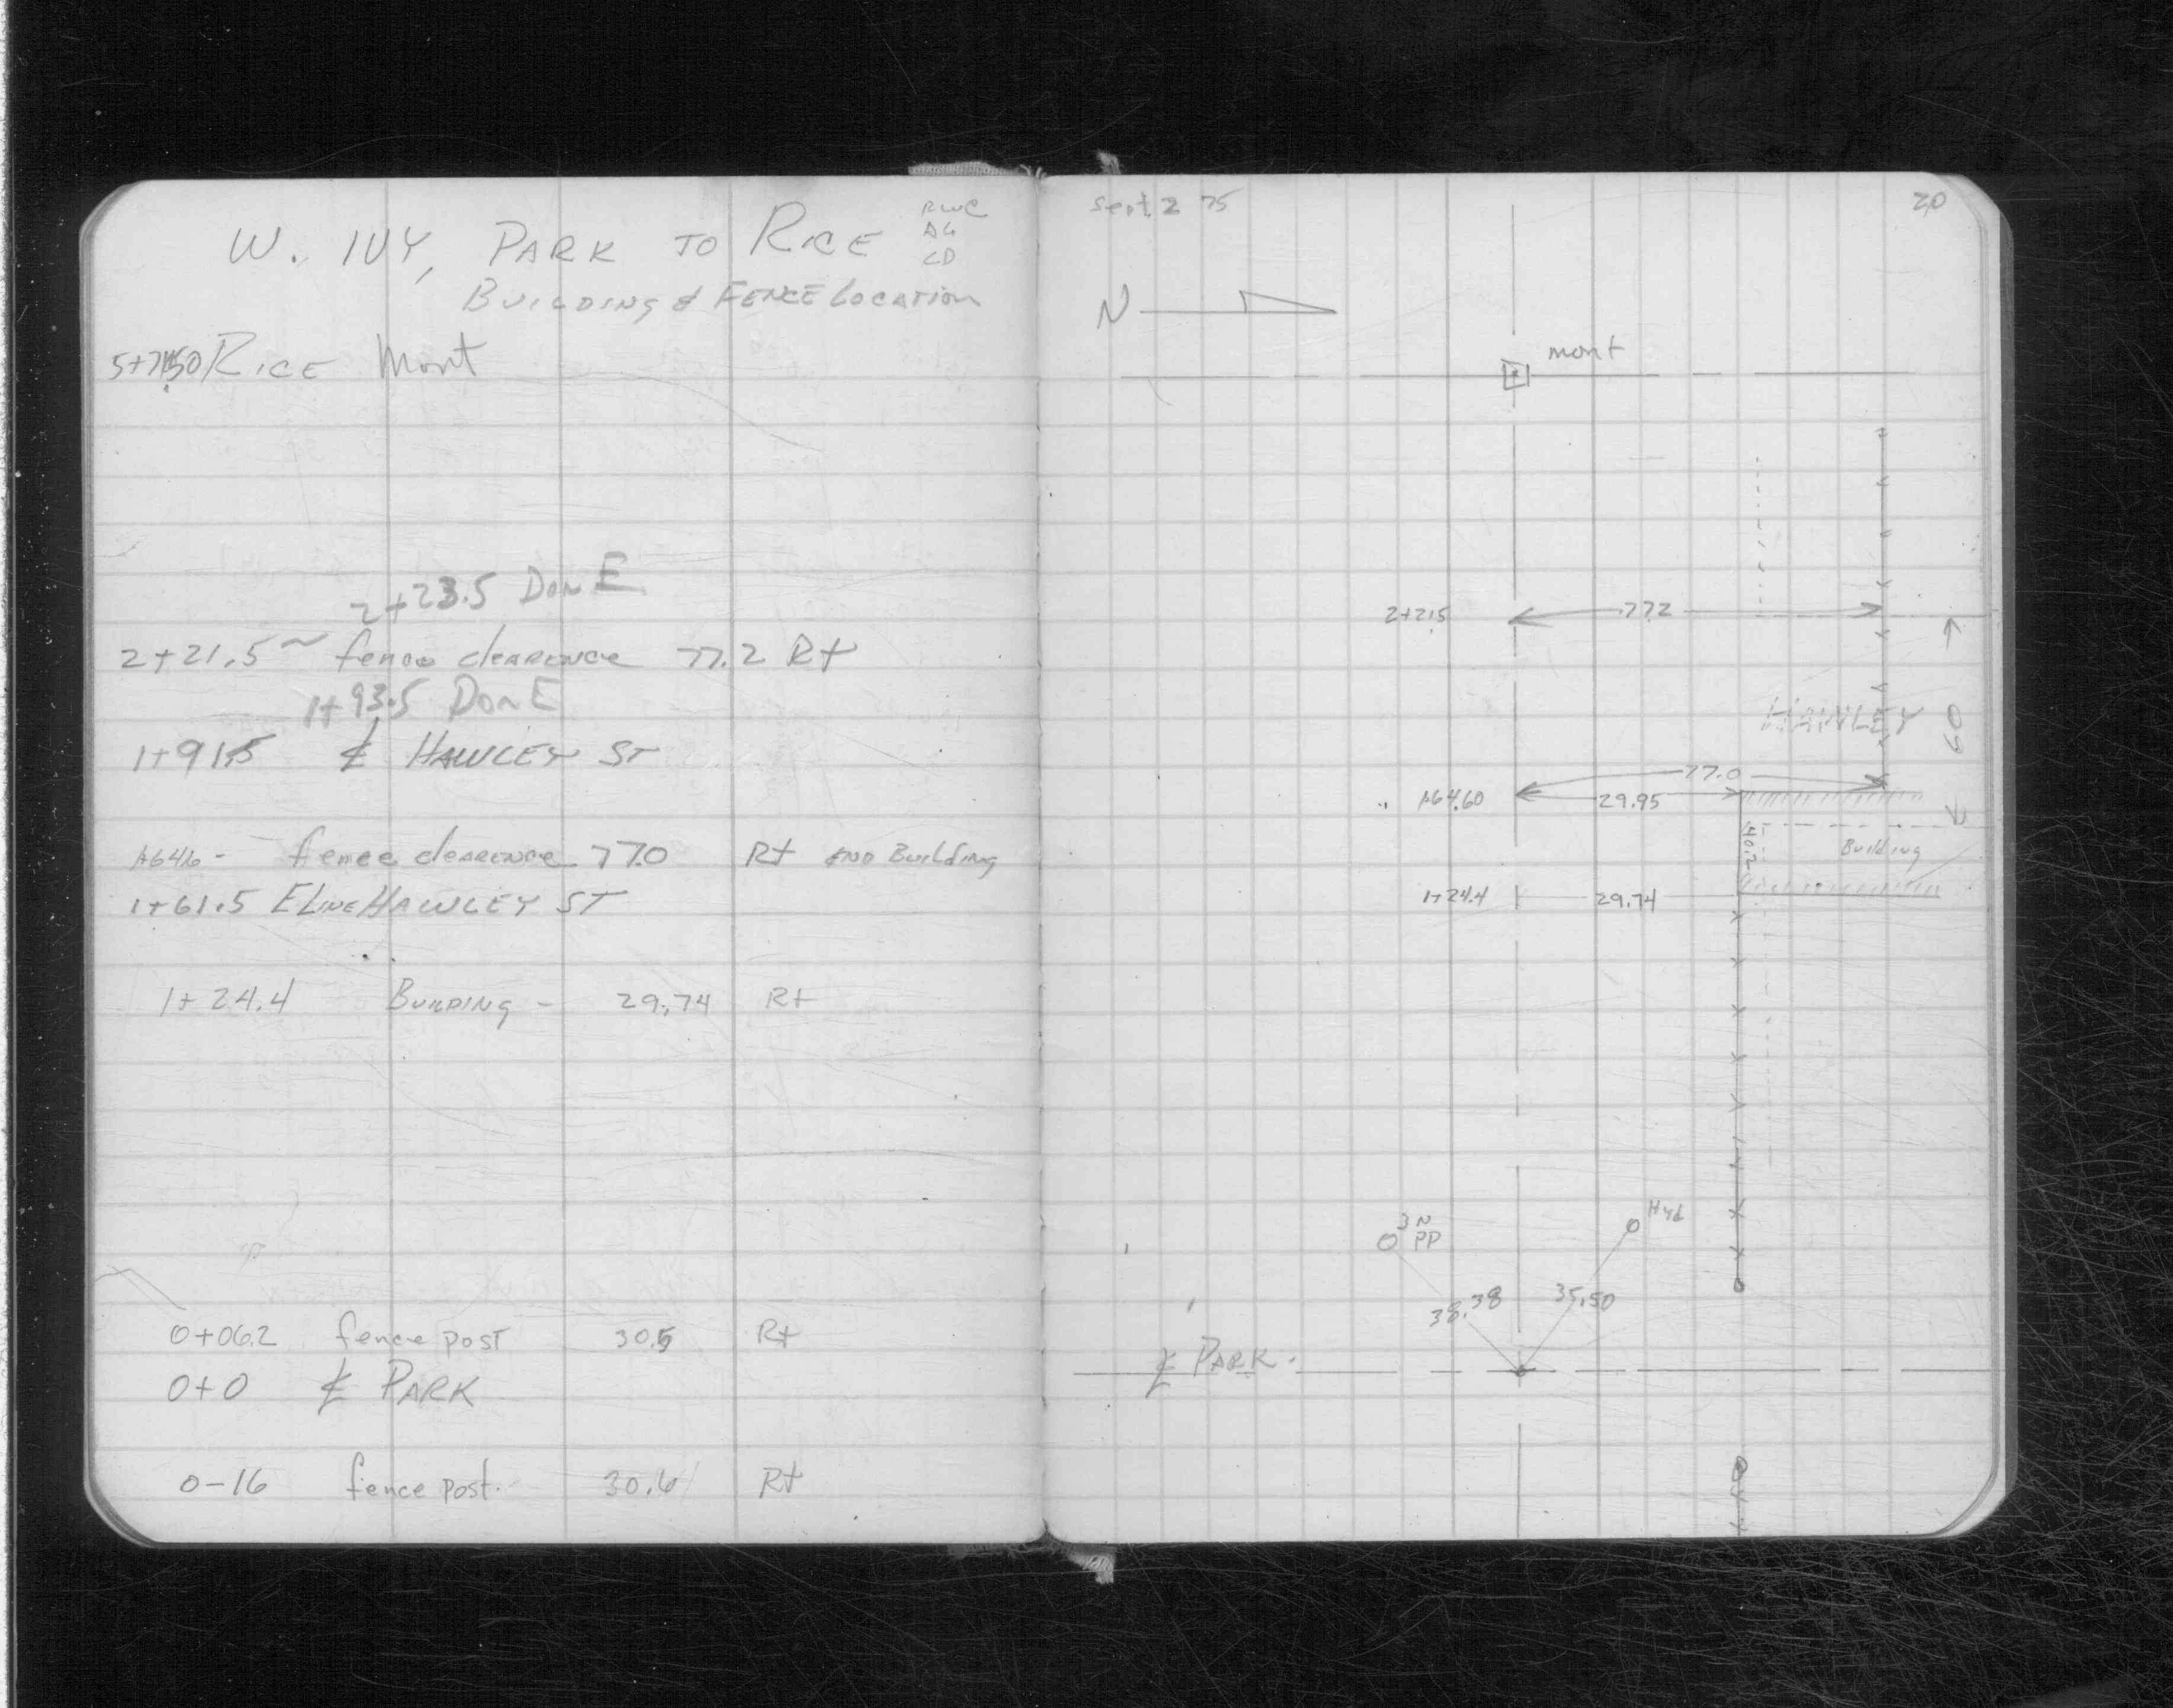 W. IVY, PARK TO RICE
RWC
AG
CD
BUILDING & FENCE LOCATION
RICE Mont
2+23.5 DONE
2+21.5 ~ fence clearence 77.2 Rt
1+93.5 DONE
1+91.5 ℄ HAWLEY ST
1+64.6 - fence clearence 77.0 Rt END Building
1+61.5 E LINE HAWLEY ST
1+24.4 BUILDING - 29.74 Rt
0+06.2 fence post 30.5 Rt
0+0 ℄ PARK
0-16 fence post. 30.6 Rt
Sept. 2 75
20
N
mont
2+21.5 77.2
HAWLEY
60
77.0
1+64.60 29.95
40.2
Building
1+24.4 29.74
3N
PP
Hyd
38.38
35.50
℄ PARK.